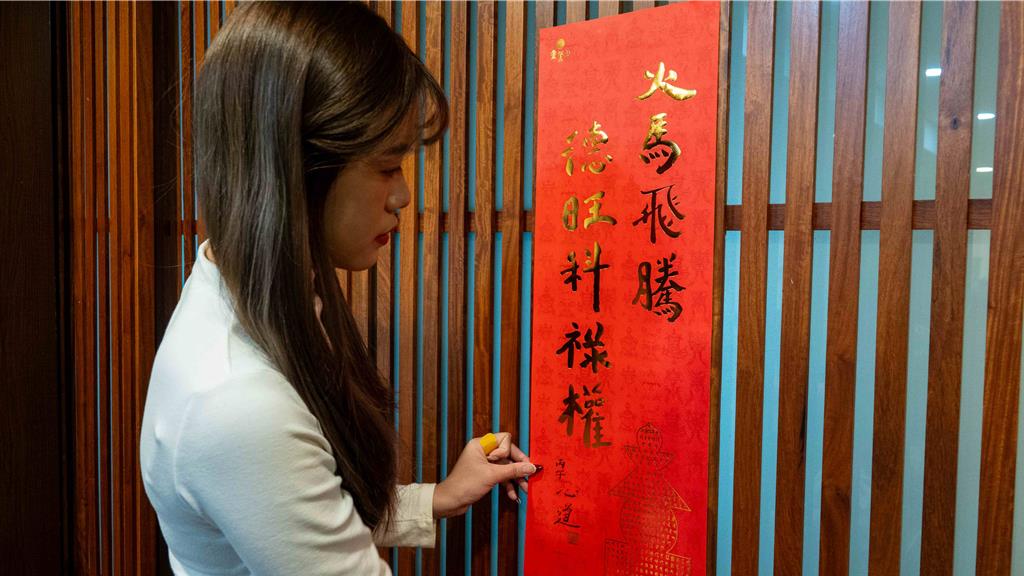 火馬飛騰
德旺科祿權
丙午 心道